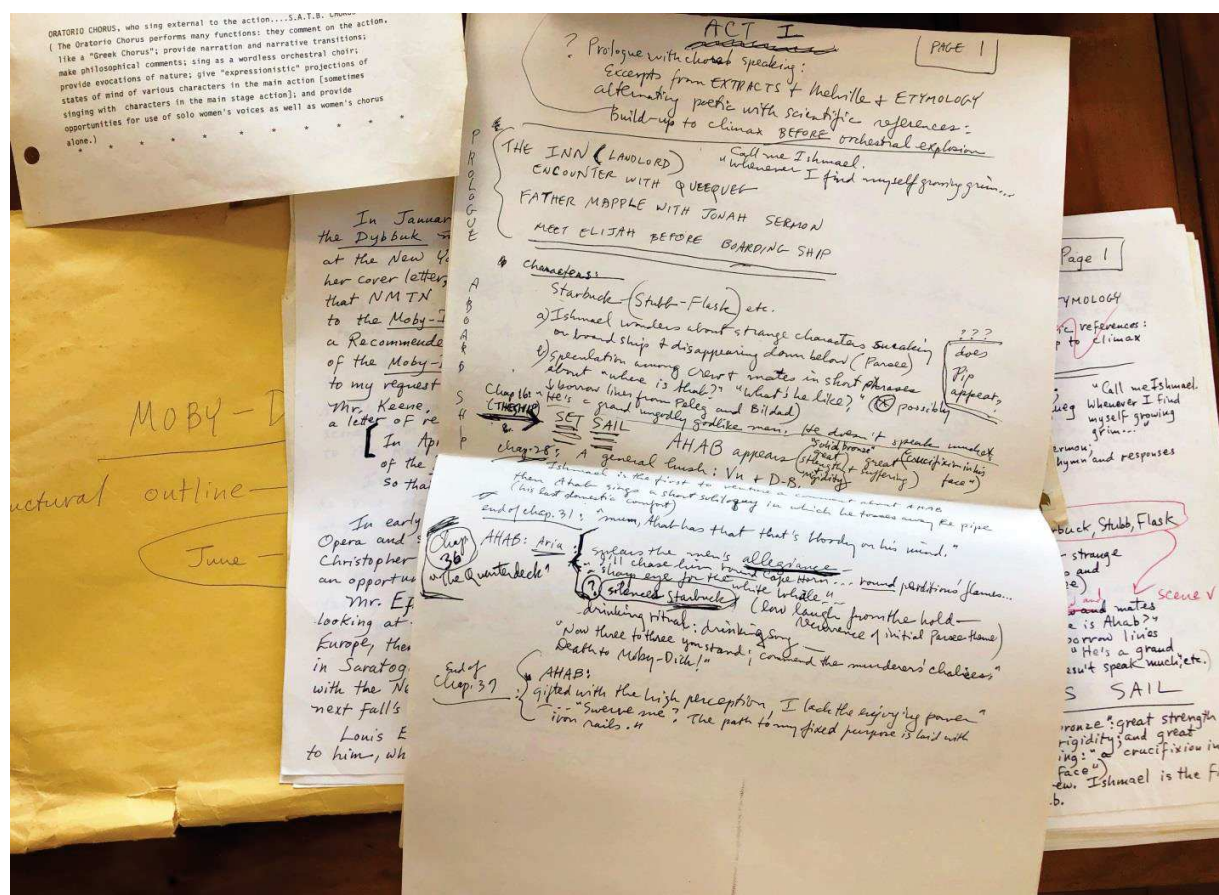 ORATORIO CHORUS, who sing external to the action....S.A.T.B. CHORUS
( The Oratorio Chorus performs many functions: they comment on the action,
like a "Greek Chorus"; provide narration and narrative transitions;
make philosophical comments; sing as a wordless orchestral choir;
provide evocations of nature; give "expressionistic" projections of
states of mind of various characters in the main action [sometimes
singing with characters in the main stage action]; and provide
opportunities for use of solo women's voices as well as women's chorus
alone.)
* * * * * * * *
MOBY-D
uctural outline—
June —
In Januar
the Dybbuk
at the New Yo
her cover letter,
that NMTN
to the Moby-D
a Recommende
of the Moby-
to my request
Mr. Keene,
a letter of re
[ In Apr
of the
so tha
In early
Opera and s
Christopher
an opportu
Mr. Ef
looking at
Europe, then
in Saratog
with the Ne
next fall's
Louis E
to him, wh
ACT I
PAGE 1
? Prologue with chorus speaking:
Excerpts from EXTRACTS + Melville + ETYMOLOGY
alternating poetic with scientific references:
Build-up to climax BEFORE orchestral explosion
PROLOGUE
THE INN (LANDLORD) "Call me Ishmael.
"Whenever I find myself growing grim...
ENCOUNTER WITH QUEEQUEG
FATHER MAPPLE WITH JONAH SERMON
MEET ELIJAH BEFORE BOARDING SHIP
ABOARD SHIP
Characters:
Starbuck (Stubb-Flask) etc.
a) Ishmael wonders about strange characters sneaking
on board ship & disappearing down below (Parsee)
b) speculation among crew & mates in short phrases
about "where is Ahab?" "What's he like?" possibly
borrow lines from Peleg and Bildad
???
does
Pip
appear?
Chap 16: "He's a grand ungodly godlike man. He doesn't speak much etc
(THE SHIP)
SET SAIL
AHAB appears ("solid bronze" great strength & rigidity great suffering (crucifixion in his face")
chap. 28: A general hush: Vn + D-B.
Ishmael is the first to venture a comment about AHAB
then Ahab sings a short soliloquy in which he tosses away the pipe
(his last domestic comfort)
end of chap. 31: "mum, Ahab has that that's bloody on his mind."
Chap 36
"The Quarterdeck"
AHAB: Aria:
swears the men's allegiance—
"I'll chase him round Cape Horn... round perdition's flames...
"sharp eye for the white whale"
(?) silences Starbuck (low laugh from the hold—
recurrence of initial Parsee theme)
drinking ritual: drinking song —
"Now three to three you stand; commend the murderous chalices,"
Death to Moby-Dick!"
End of
chap. 37
AHAB:
gifted with the high perception, I lack the enjoying power"
..."Swerve me? The path to my fixed purpose is laid with
iron rails."
Page 1
YMOLOGY
references:
to climax
"Call me Ishmael.
ueg Whenever I find
myself growing
grim..."
ermon;
hymn and responses
buck, Stubb, Flask
strange
and
and mates
scene V
e is Ahab?"
borrow lines
"He's a grand
esn't speak much," etc.)
S SAIL
ronze": great strength
rigidity; and great
ing: "a crucifixion in
face")
ew. Ishmael is the f
b.